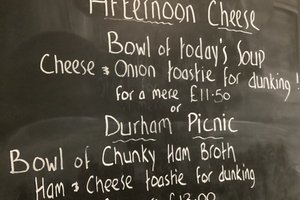 Afternoon Cheese
Bowl of today's Soup
Cheese & Onion toastie for dunking !
for a mere £11.50
or
Durham Picnic
Bowl of Chunky Ham Broth
Ham & Cheese toastie for dunking